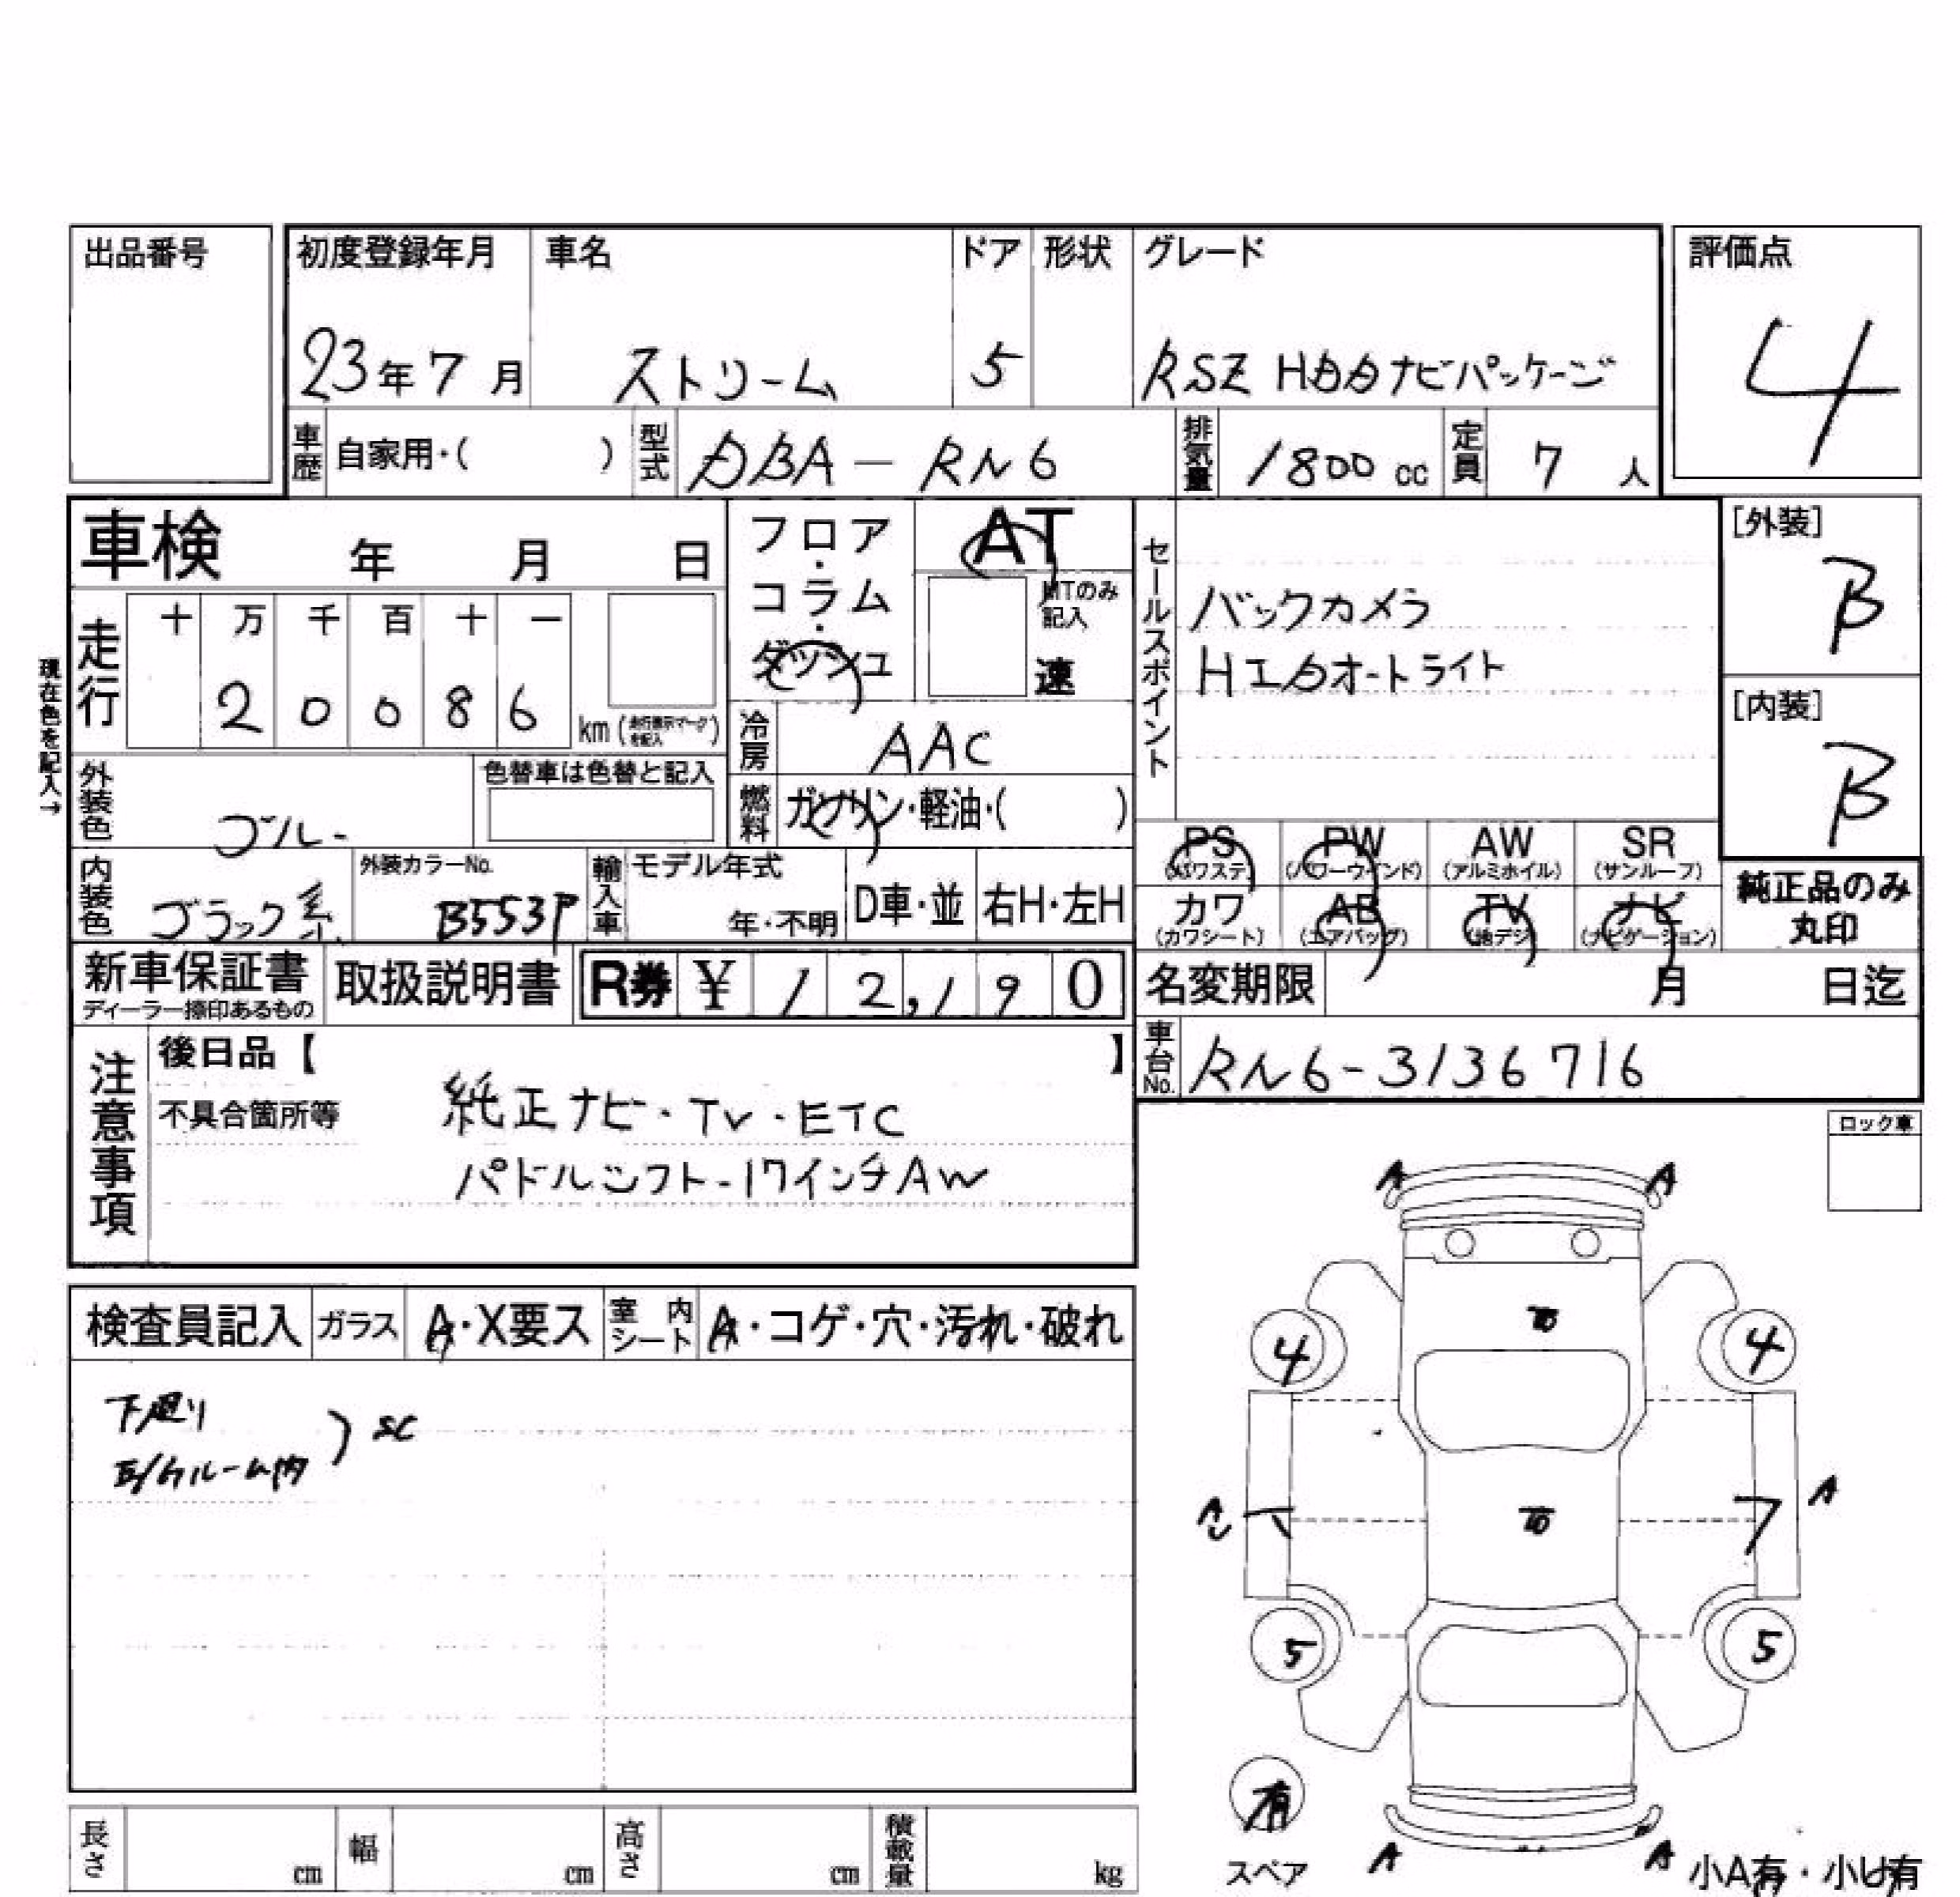 出品番号
初度登録年月 車名 ドア 形状 グレード
評価点
23年7月 ストリーム 5 RSZ HDDナビパッケージ
4
車歴 自家用・( ) 型式 DBA-RN6 排気量 1800cc 定員 7人
車検 年 月 日
フロア・コラム・ダッシュ
AT
MTのみ記入
速
現在色を記入→
走行 十 万 千 百 十 一
2 0 0 8 6 km(走行表示マークを記入)
冷房 AAC
外装色 ブルー
色替車は色替と記入
燃料 ガソリン・軽油・( )
内装色 ブラック系
外装カラーNo. B553P
輸入車 モデル年式 年・不明 D車・並 右H・左H
セールスポイント
バックカメラ
HIDオートライト
[外装] B
[内装] B
PS (パワステ) PW (パワーウインド) AW (アルミホイル) SR (サンルーフ)
カワ (カワシート) AB (エアバッグ) TV (地デジ) ナビ (ナビゲーション)
純正品のみ
丸印
新車保証書 ディーラー捺印あるもの 取扱説明書 R券 ¥12,190
名変期限 月 日迄
車台No. RN6-3136716
注意事項
後日品【 】
不具合箇所等 純正ナビ・TV・ETC
パドルシフト-17インチAW
ロック車
検査員記入 ガラス A・X要ス 室内シート A・コゲ・穴・汚れ・破れ
下廻り
E/Gルーム内 ) SC
A A
4 4
A
A
5 5
有
スペア
A A
小A有・小U有
長さ cm 幅 cm 高さ cm 積載量 kg